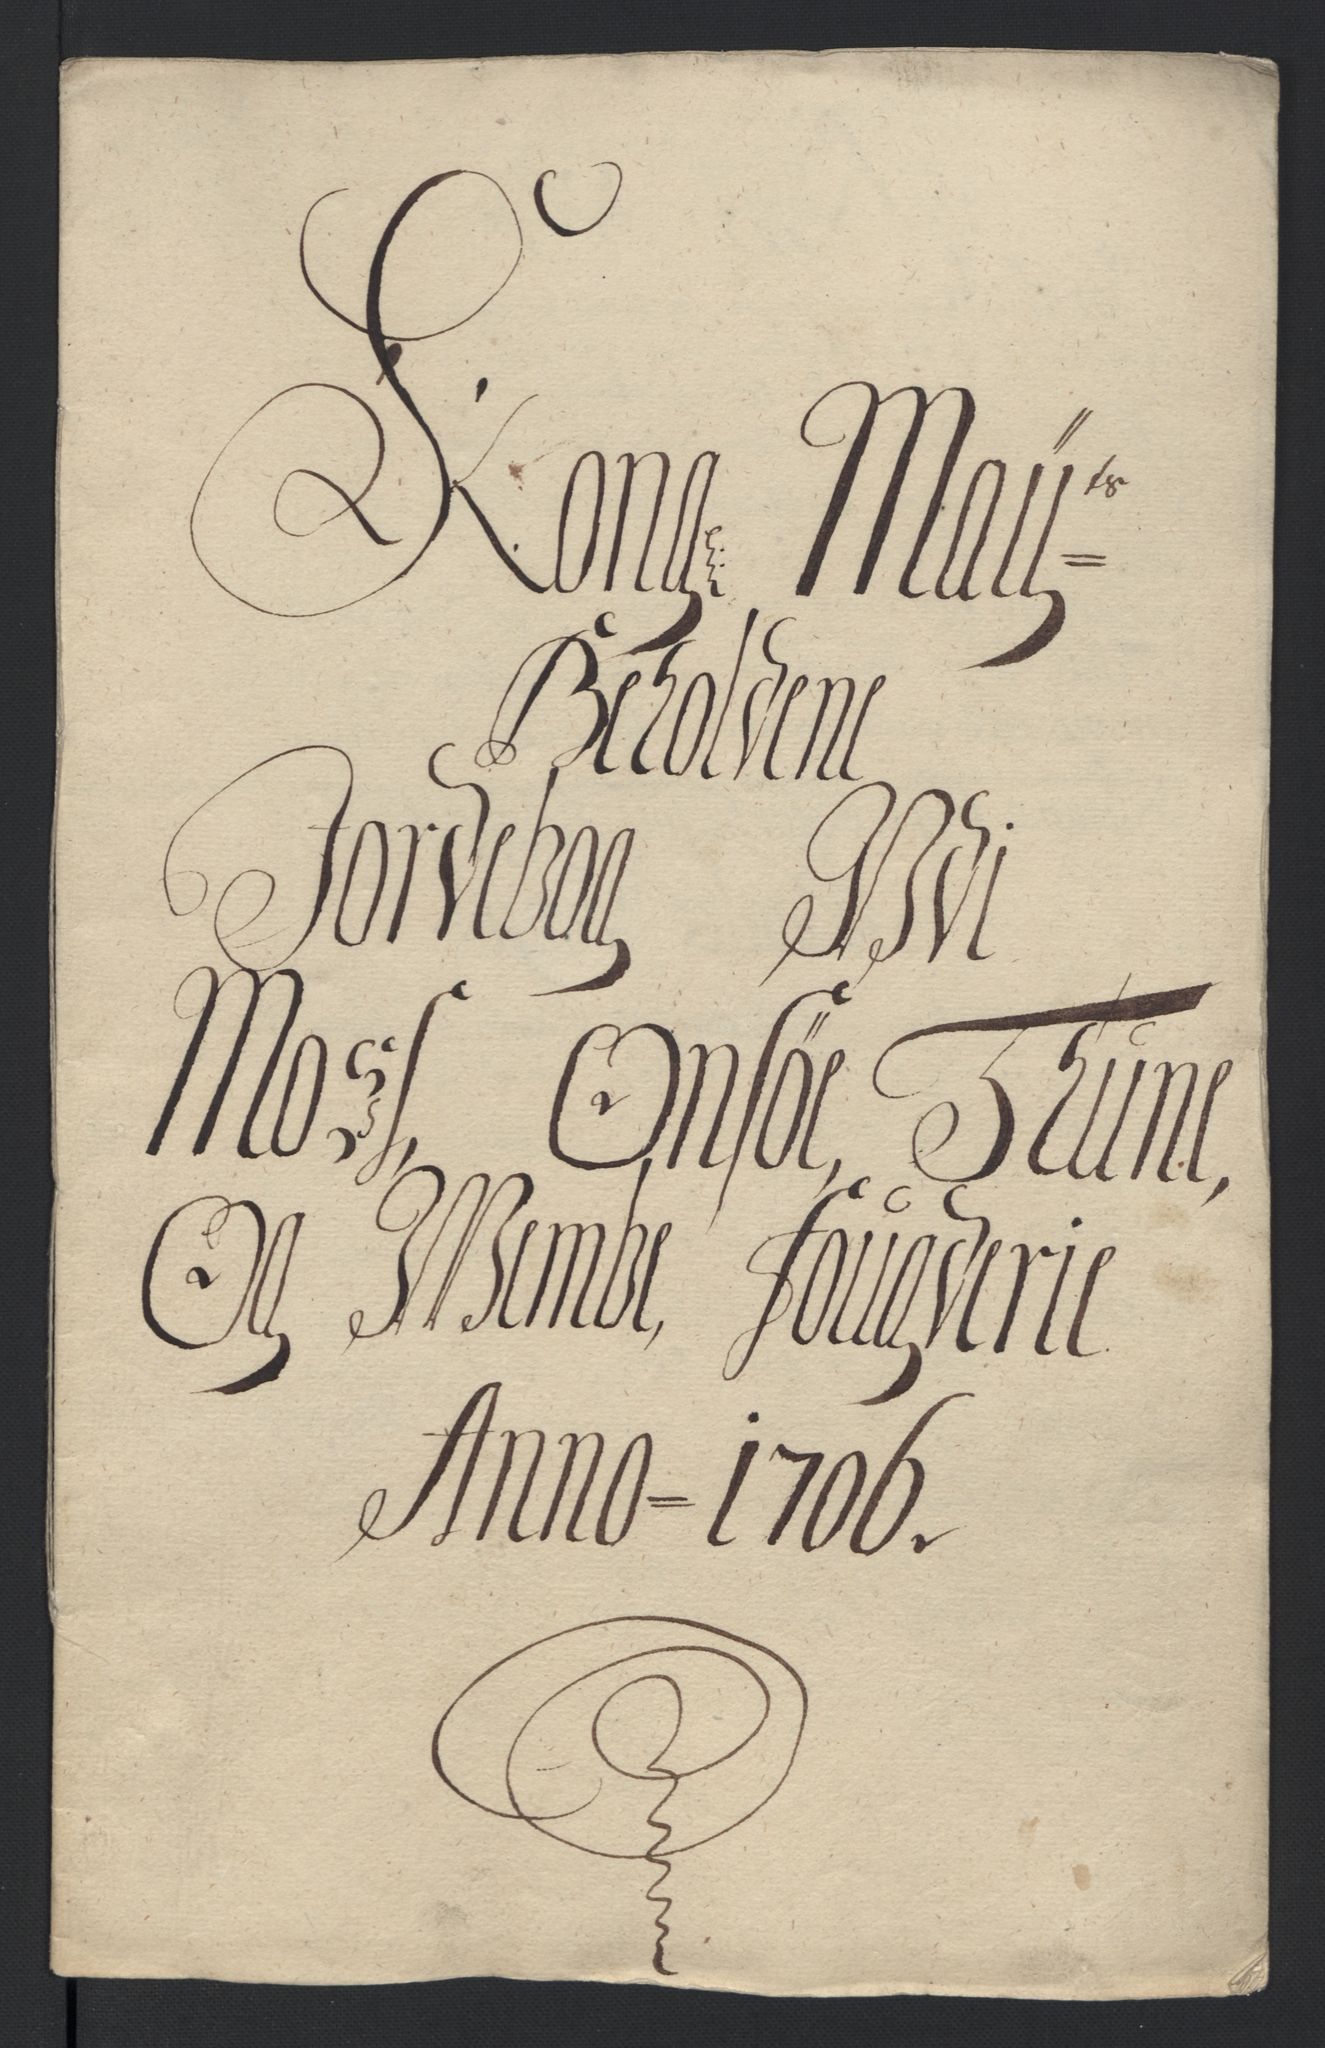 Kong: Maÿts=
Beholdene
Jordebog Udi
Moss, Onsöe, Thune,
Og Wembe, fougderie
Anno= 1706.